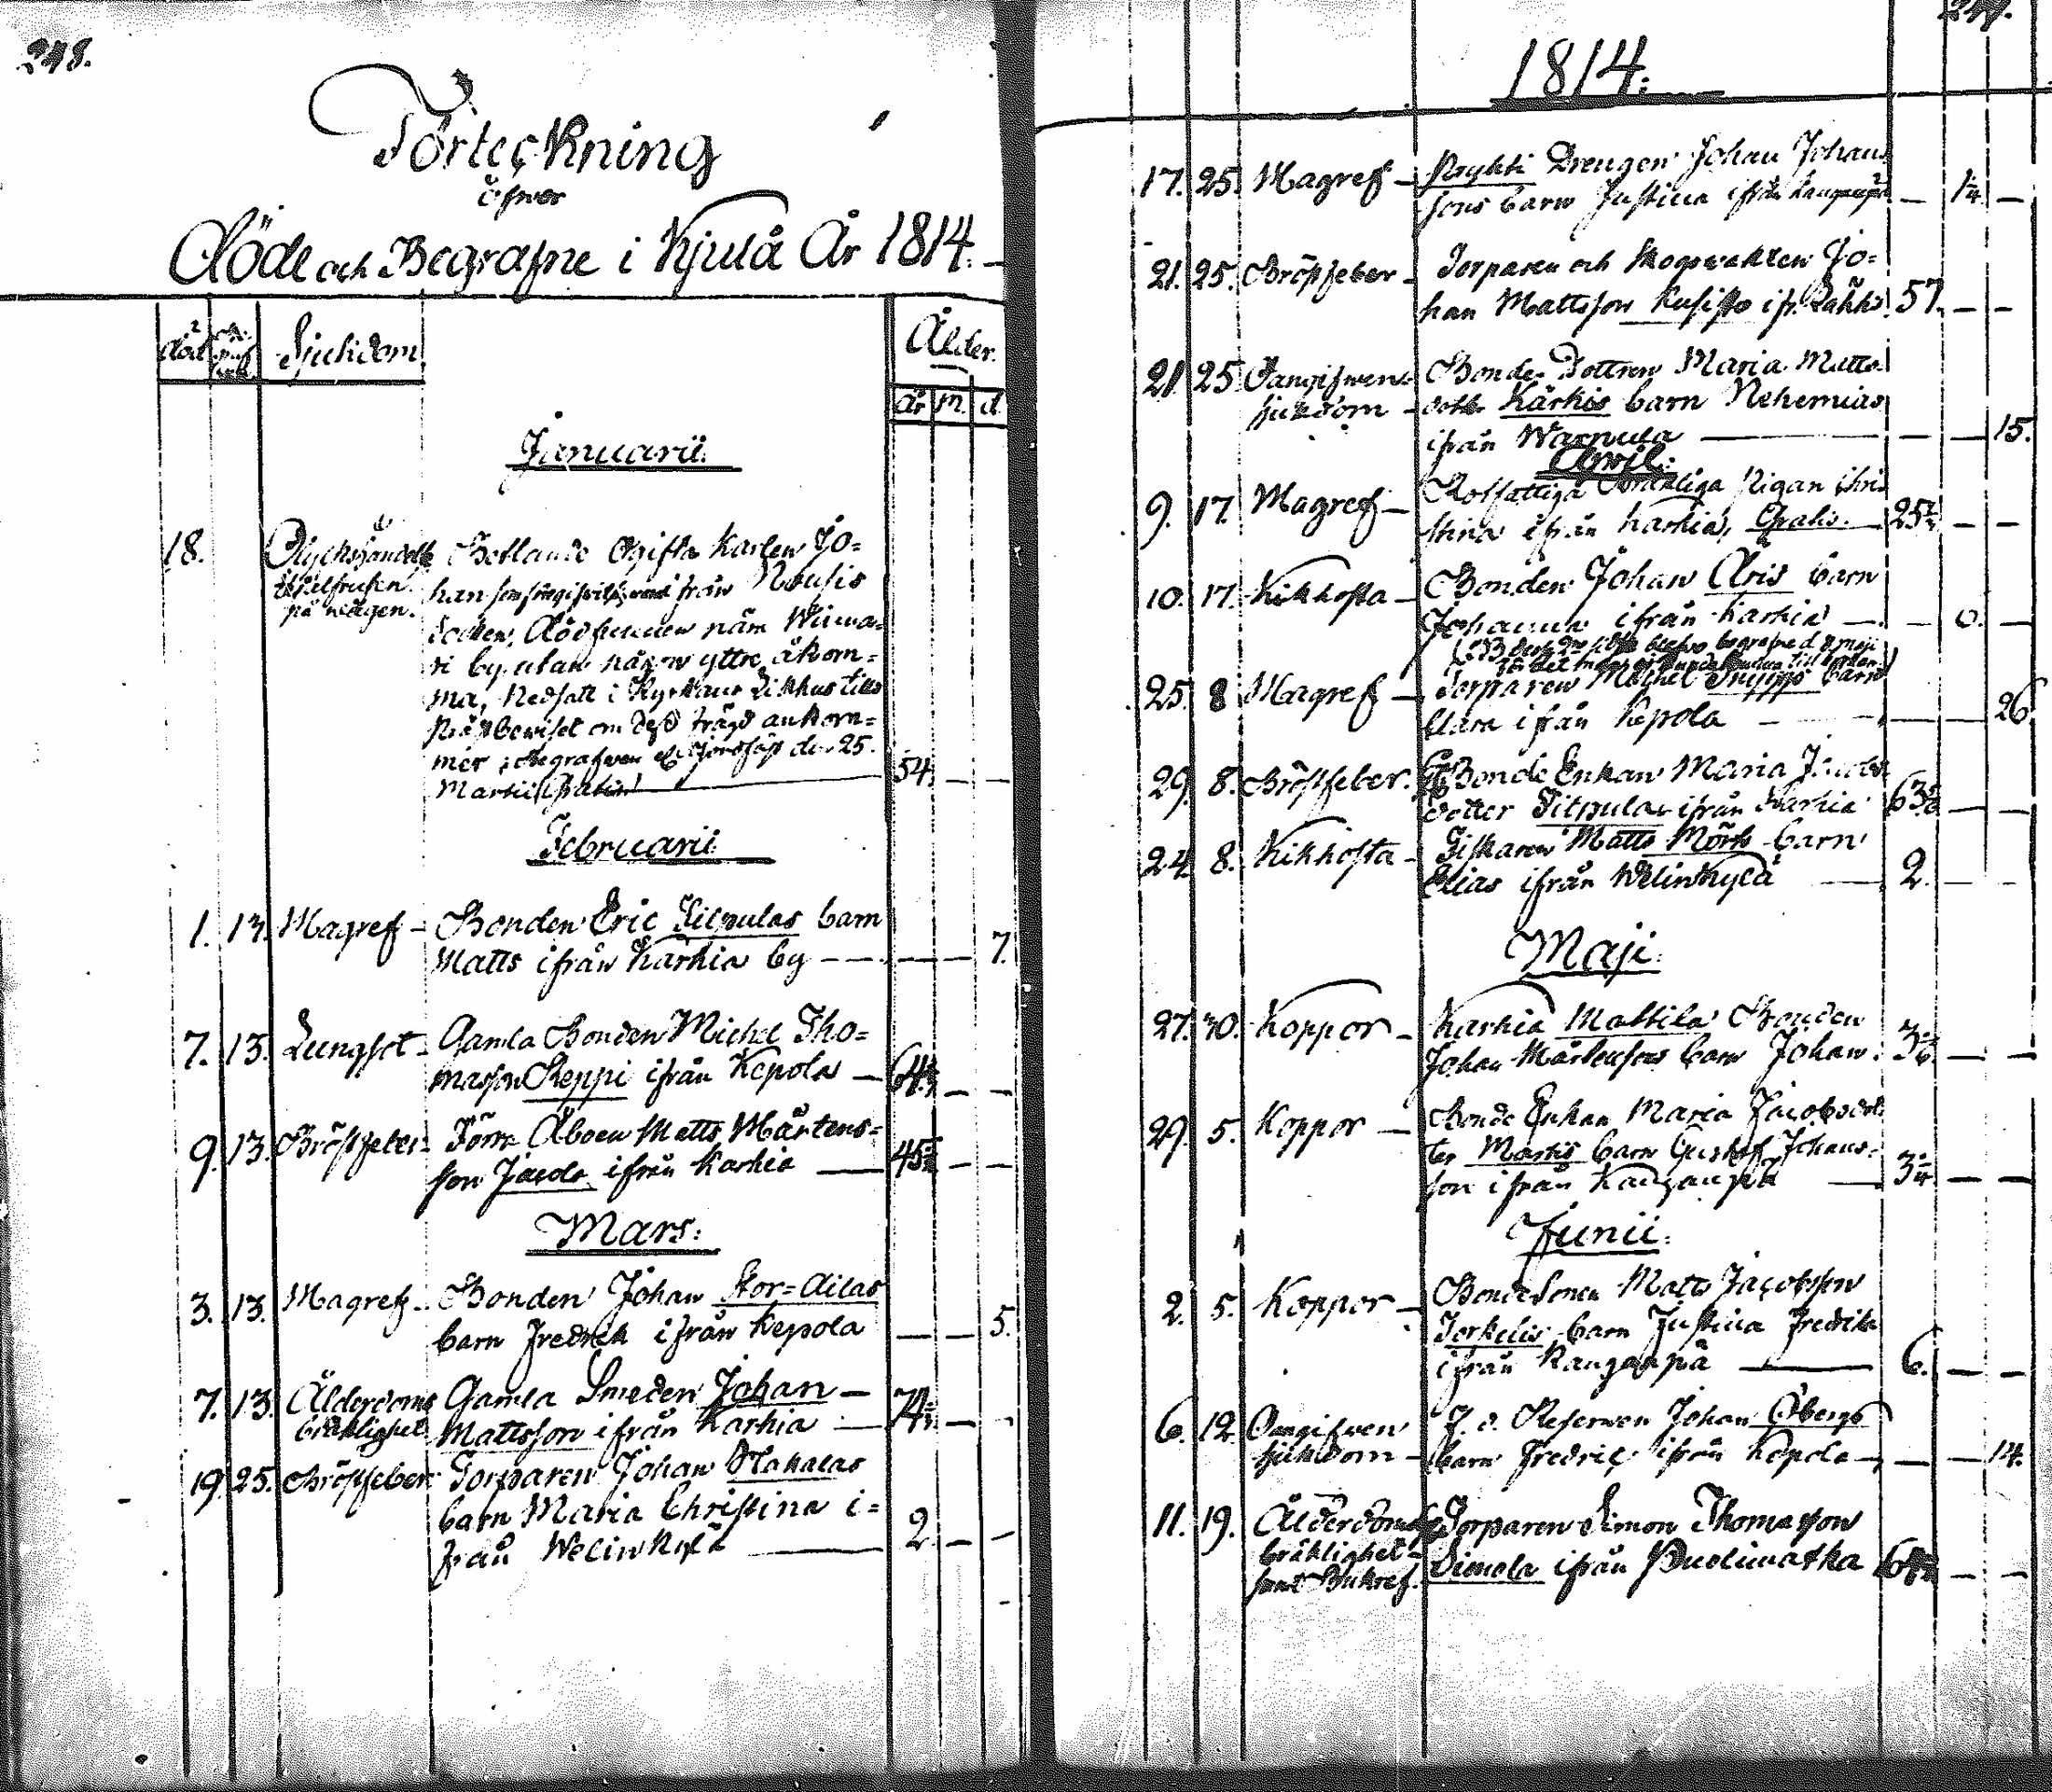 248.
Förteckning
öfwer
Döde och Begrafne i Kjulå År 1814.
död
Sjukdom
Ålder.
år m. d.
Januarii.
18. Olyckshändelse Betlande Ogifta Karlen Jo=
ihjelfrusen han från Nousis
på wägen.
Socken, Dödfunnen näm Wiima=
ri by utan någon yttre åkom=
ma, Nedsatt i Kyrkans Likhus tills
Prästbewiset om dess frägd ankom=
mer, Begrafwen den 25.
Martii (Gratis) 54. — —
Februarii
1. 13. Magref — Bonden Eric Pilpulas barn
Matts ifrån Karhia by — — — 7.
7. 13. Lungsot — Gamla Bonden Michel Tho=
masson Seppi ifrån Kepola — — —
9. 13. Bröstfeber — Förra Åboen Matts Mårtens=
son ifrån Karhia — 45 — —
Mars.
3. 13. Magref — Bonden Johan Stor=Ailas
barn Fredrik ifrån Kepola — — 5.
7. 13. Ålderdoms Gamla Smeden Johan —
bräklighet Mattsson ifrån Karhia — 74 — —
19. 25. Bröstfeber Torparen Johan Stakalas
barn Maria Christina i=
från Welinkylä — 2. — —
249.
1814.
17. 25. Magref — Drengen Johan Johans
sons barn Justina ifrån — 1/4 —
21. 25. Bröstfeber — Torparen och Skogwakten Jo=
han Mattsson Kusisto ifr. 57. — —
21. 25. Oangifwen Bonde Dottren Maria Matts
sjukdom — dotter Kärkis barn Nehemias
ifrån Warnula — — — 15.
April.
9. 17. Magref — Rotfattiga Bräkliga Pigan Chri
stina ifrån Karhia, Gratis. — 25 — —
10. 17. Kikhosta — Bonden Johan Aris barn
Johanna ifrån Karhia — — 6. —
25. 8. Magref — Torparen Michel barn
Clara ifrån Kepola — — — 26.
29. 8. Bröstfeber. Bonde Enkan Maria Jacobs
dotter Pilpula ifrån Karhia 63 — —
24. 8. Kikhosta — Fiskaren Matts Mörks barn
Elias ifrån Welinkylä — 2. — —
Maji.
27. 30. Koppor — Karhia Mattila Bonden
Johan Mårtenssons barn Johan. 3 — —
29. 5. Koppor — Bonde Enkan Maria Jacobsdot
ter Martis barn Gustaf Johans=
son ifrån Kauganpä — 3 — —
Junii.
2. 5. Koppor — Bondesonen Matts Jacobsson
Torkelis barn Justina Fredrika
ifrån Kauganpä — 6. — —
6. 12. Oangifwen F. d. Reserven Johan Öbergs
sjukdom — barn Fredric ifrån Kepola — — — 14.
11. 19. Ålderdoms Torparen Simon Thomasson
bräklighet Simola ifrån Puolimatka — —
samt Bukref.